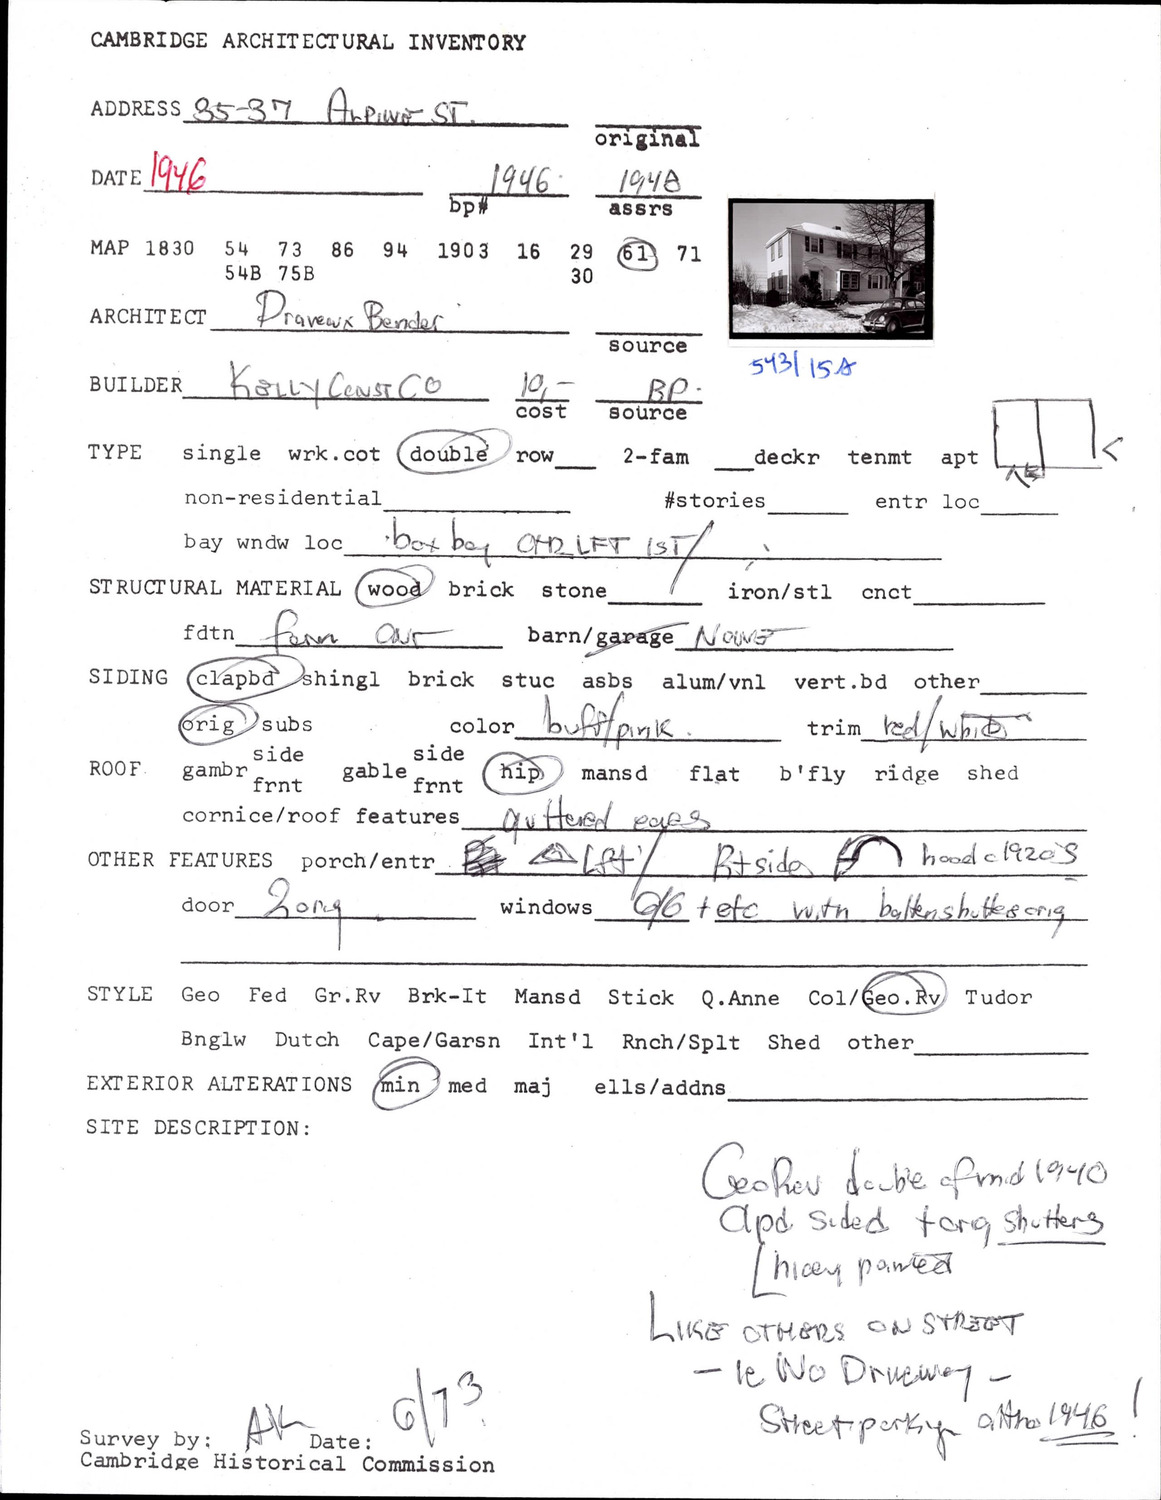 CAMBRIDGE ARCHITECTURAL INVENTORY
ADDRESS 35-37 Alpine St.
original
DATE 1946 1946 1948
bp# assrs
MAP 1830 54 73 86 94 1903 16 29 61 71
54B 75B 30
ARCHITECT Draveaux Bender
source
543/15A
BUILDER Kelly Const Co 10,- BP.
cost source
TYPE single wrk.cot double row 2-fam deckr tenmt apt
non-residential #stories entr loc
bay wndw loc box bay LFT 1ST/
STRUCTURAL MATERIAL wood brick stone iron/stl cnct
fdtn barn/garage None
SIDING clapbd shingl brick stuc asbs alum/vnl vert.bd other
orig subs color buff/pink. trim red/white
side side
ROOF gambr gable hip mansd flat b'fly ridge shed
frnt frnt
cornice/roof features guttered eaves
OTHER FEATURES porch/entr Lft/ Rt side hood c1920's
door 2 orig windows 6/6 + etc with batten shutters orig
STYLE Geo Fed Gr.Rv Brk-It Mansd Stick Q.Anne Col/Geo.Rv Tudor
Bnglw Dutch Cape/Garsn Int'l Rnch/Splt Shed other
EXTERIOR ALTERATIONS min med maj ells/addns
SITE DESCRIPTION:
Geo Rev double of mid 1940
sided + orig shutters
nicely painted
LIKE OTHERS ON STREET
- ie No Driveway -
Street parking 1946!
Survey by: AK Date: 6/73
Cambridge Historical Commission